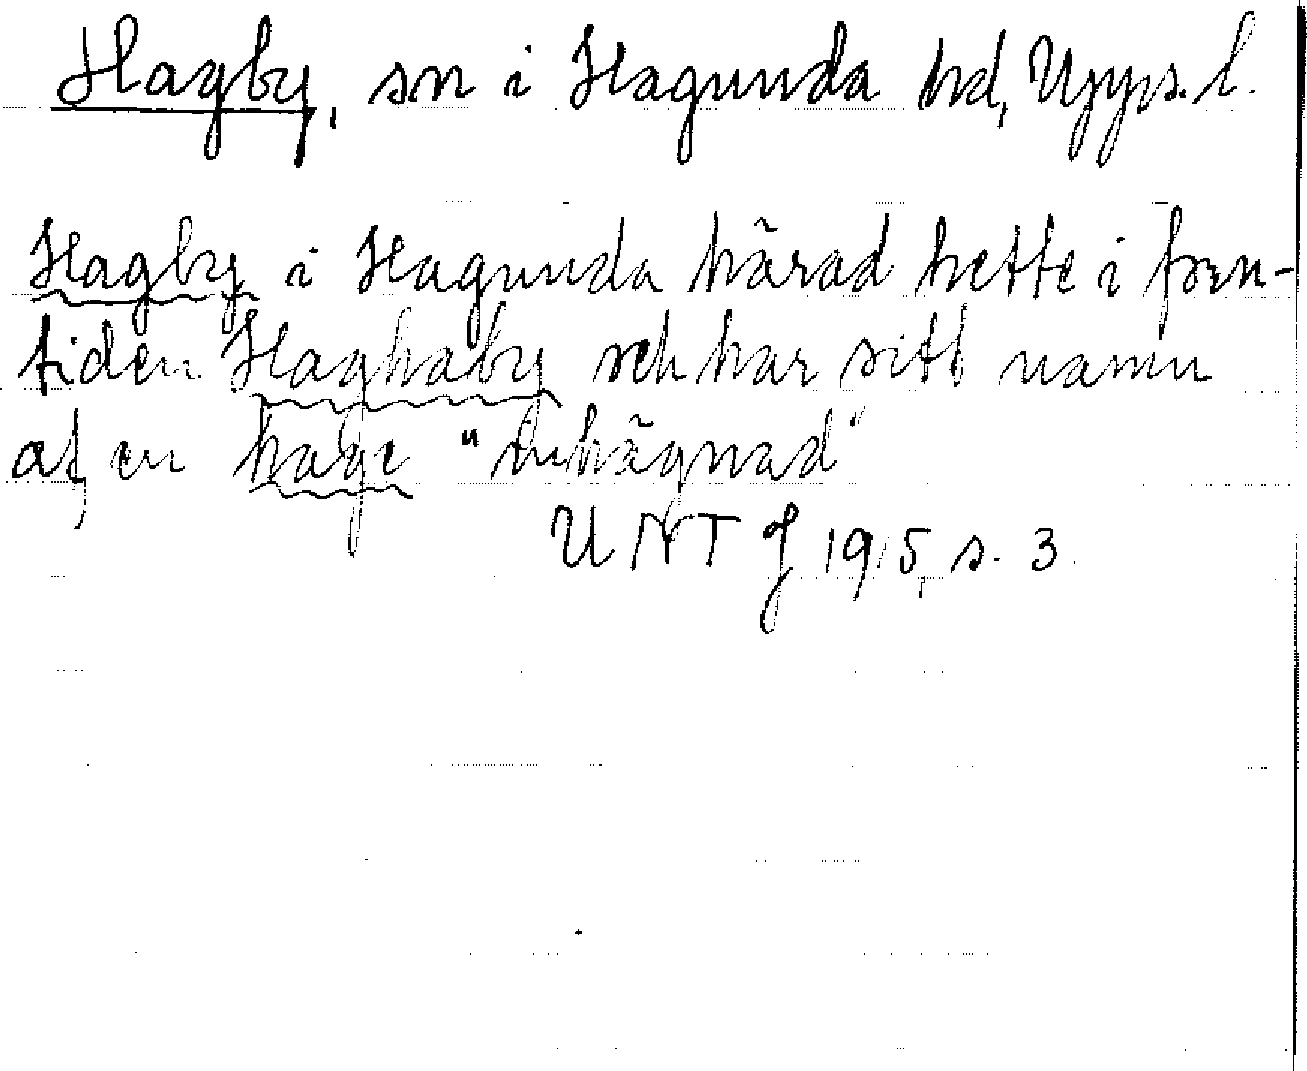 Hagby, sn i Hagunda hd, Upps. l.
Hagby i Hagunda härad hette i forn-
tiden Haghaby och har sitt namn
af en hage "inhägnad"
UNT J 1915, s. 3.